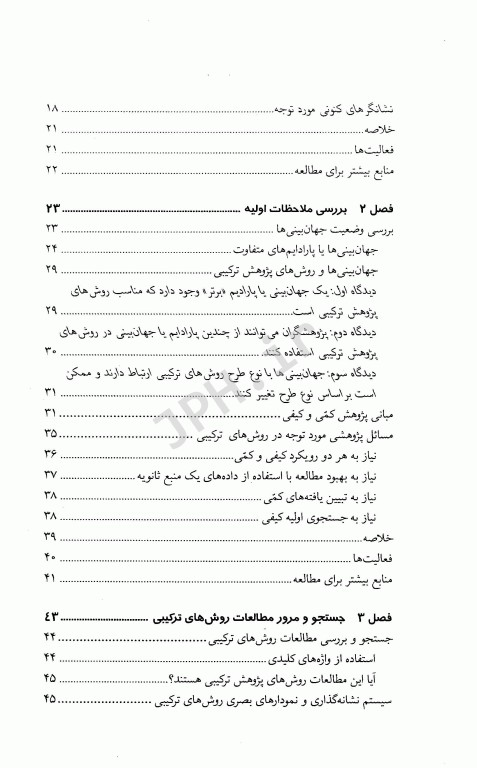 نشانگرهای کنونی مورد توجه ........ ۱۸
خلاصه ........ ۲۱
فعالیت‌ها ........ ۲۱
منابع بیشتر برای مطالعه ........ ۲۲
فصل ۲ بررسی ملاحظات اولیه ........ ۲۳
بررسی وضعیت جهان‌بینی‌ها ........ ۲۳
جهان‌بینی‌ها یا پارادایم‌های متفاوت ........ ۲۴
جهان‌بینی‌ها و روش‌های پژوهش ترکیبی ........ ۲۹
دیدگاه اول: یک جهان‌بینی یا پارادیم «برتر» وجود دارد که مناسب روش‌های
پژوهش ترکیبی است ........ ۲۹
دیدگاه دوم: پژوهشگران می‌توانند از چندین پارادایم یا جهان‌بینی در روش‌های
پژوهش ترکیبی استفاده کنند ........ ۳۰
دیدگاه سوم: جهان‌بینی‌ها با نوع طرح روش‌های ترکیبی ارتباط دارند و ممکن
است بر اساس نوع طرح تغییر کنند ........ ۳۱
مبانی پژوهش کمّی و کیفی ........ ۳۱
مسائل پژوهشی مورد توجه در روش‌های ترکیبی ........ ۳۵
نیاز به هر دو رویکرد کیفی و کمّی ........ ۳۶
نیاز به بهبود مطالعه با استفاده از داده‌های یک منبع ثانویه ........ ۳۷
نیاز به تبیین یافته‌های کمّی ........ ۳۸
نیاز به جستجوی اولیه کیفی ........ ۳۸
خلاصه ........ ۳۹
فعالیت‌ها ........ ۴۰
منابع بیشتر برای مطالعه ........ ۴۱
فصل ۳ جستجو و مرور مطالعات روش‌های ترکیبی ........ ۴۳
جستجو و بررسی مطالعات روش‌های ترکیبی ........ ۴۴
استفاده از واژه‌های کلیدی ........ ۴۴
آیا این مطالعات روش‌های پژوهش ترکیبی هستند؟ ........ ۴۵
سیستم نشانه‌گذاری و نمودارهای بصری روش‌های ترکیبی ........ ۴۵
JPH.ir